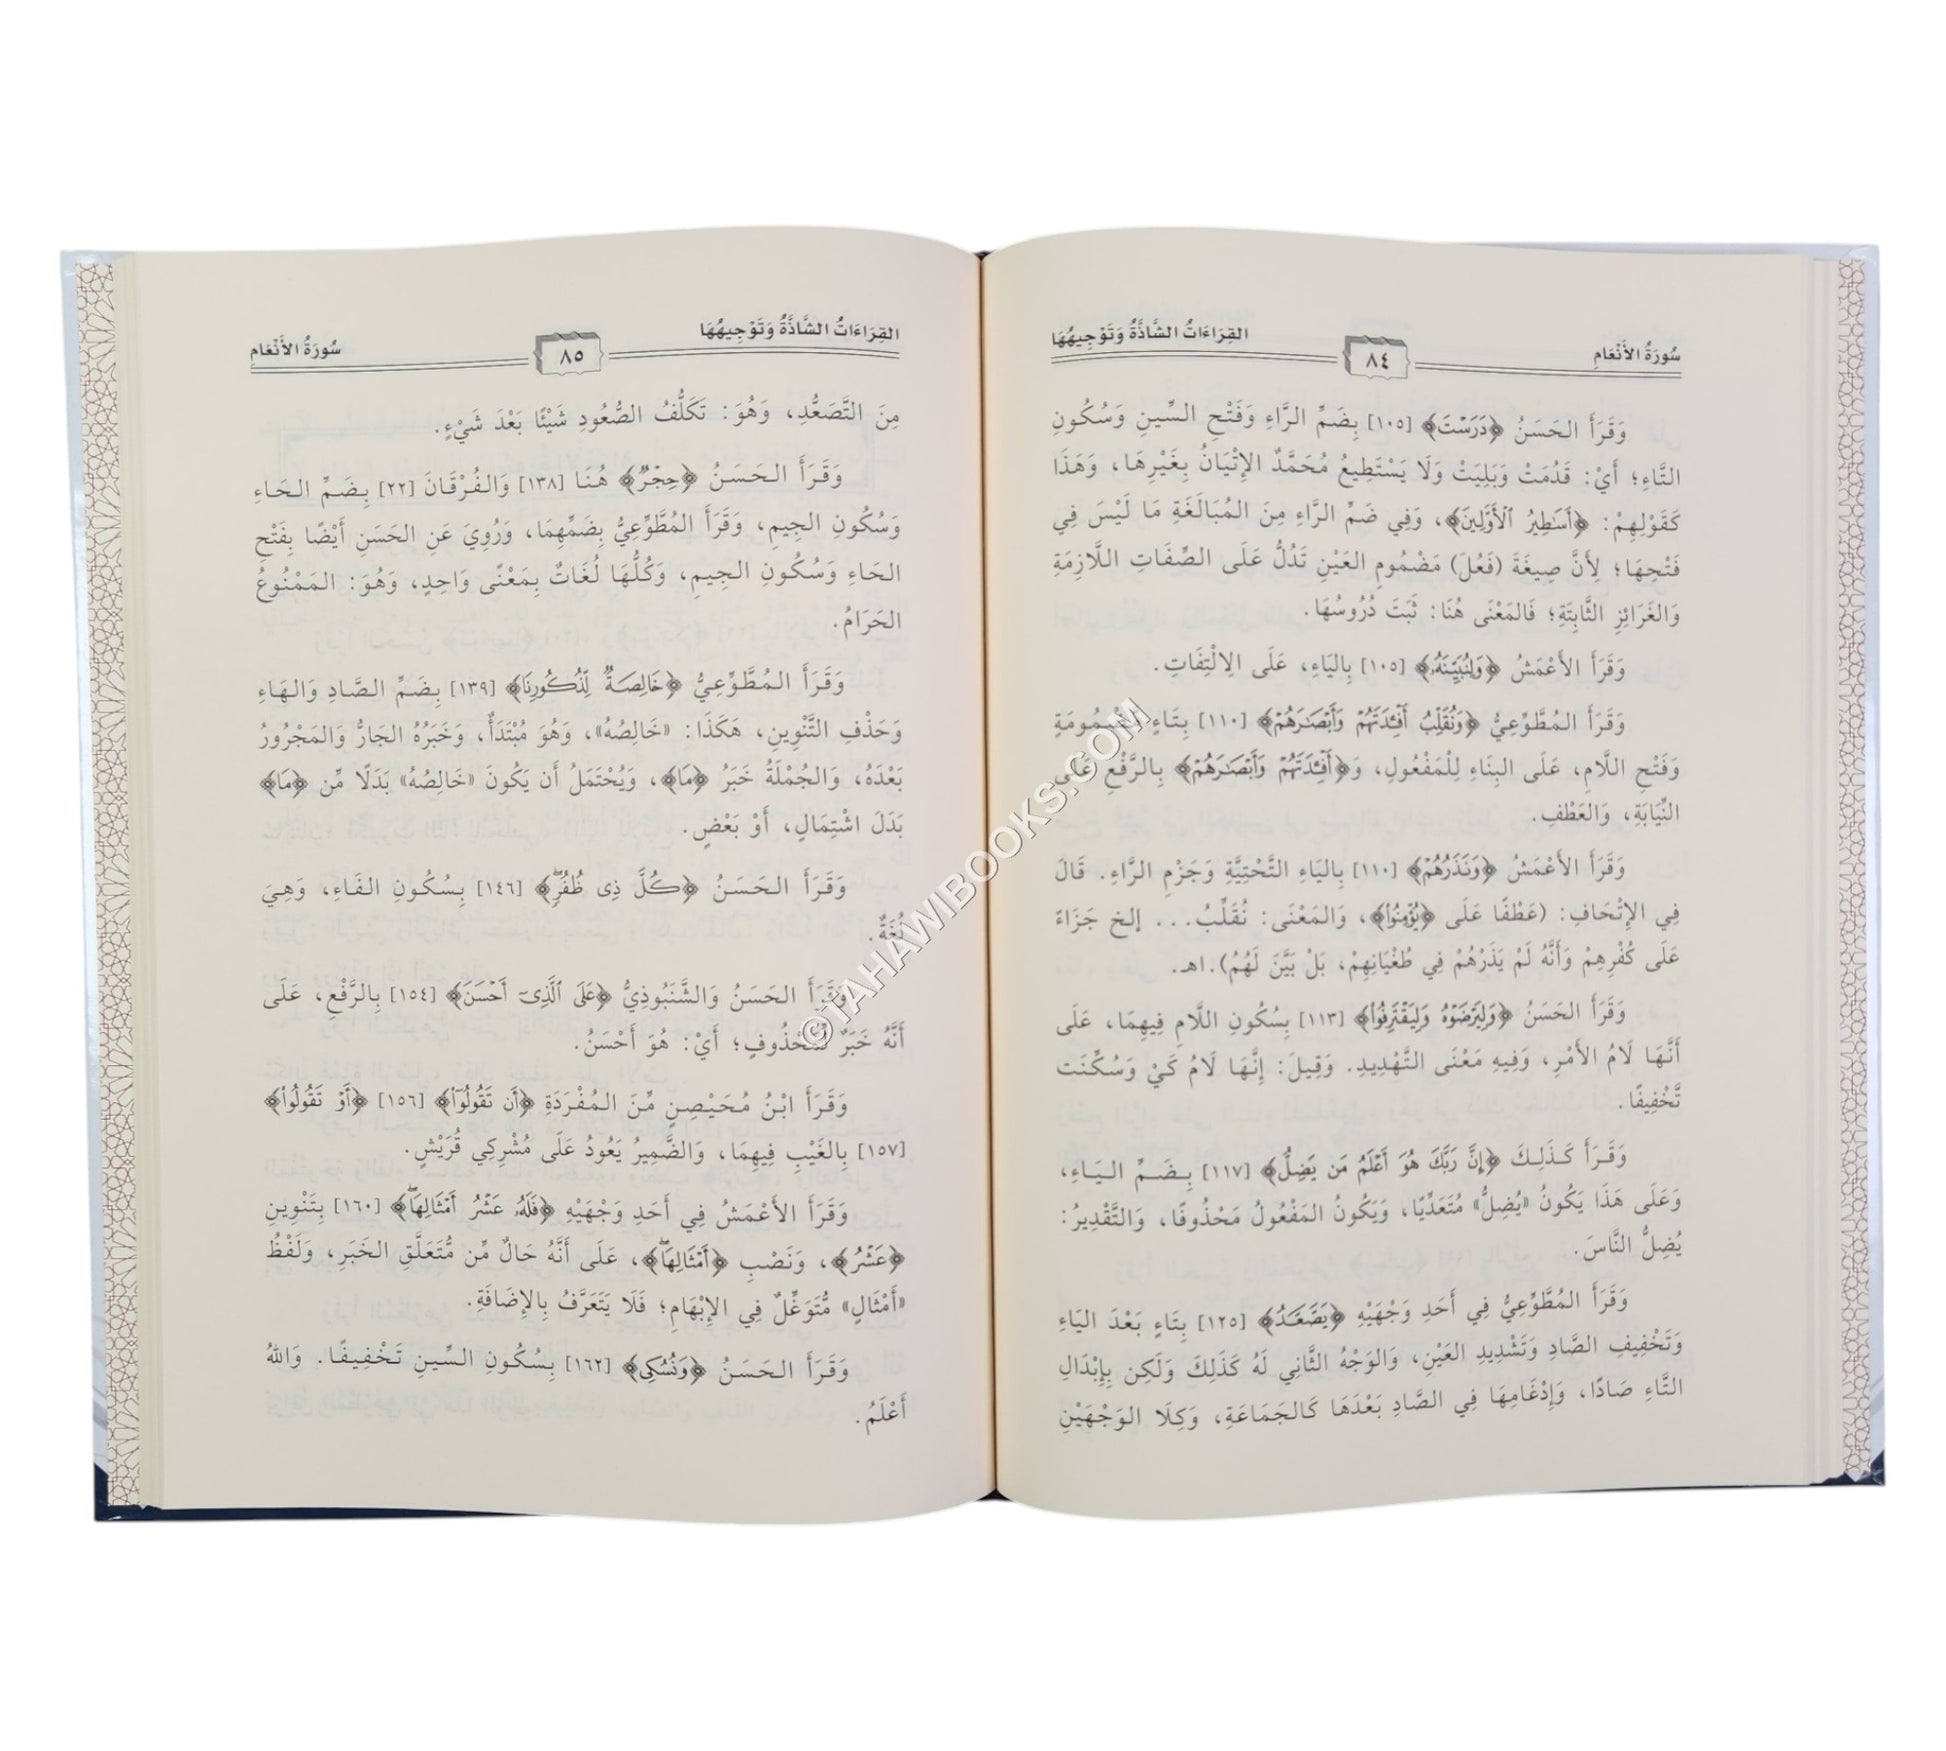 سُورَةُ الأَنْعَامِ
٨٤
القِرَاءَاتُ الشَّاذَّةُ وَتَوْجِيهُهَا
وَقَرَأَ الحَسَنُ ﴿دَرَسْتَ﴾ [١٠٥] بِضَمِّ الرَّاءِ وَفَتْحِ السِّينِ وَسُكُونِ
التَّاءِ؛ أَيْ: قَدُمَتْ وَبَلِيَتْ وَلَا يَسْتَطِيعُ مُحَمَّدٌ الإِتْيَانَ بِغَيْرِهَا، وَهَذَا
كَقَوْلِهِمْ: ﴿أَسَٰطِيرُ ٱلْأَوَّلِينَ﴾، وَفِي ضَمِّ الرَّاءِ مِنَ المُبَالَغَةِ مَا لَيْسَ فِي
فَتْحِهَا؛ لِأَنَّ صِيغَةَ (فَعُلَ) مَضْمُومِ العَيْنِ تَدُلُّ عَلَى الصِّفَاتِ اللَّازِمَةِ
وَالغَرَائِزِ الثَّابِتَةِ؛ فَالمَعْنَى هُنَا: ثَبَتَ دُرُوسُهَا.
وَقَرَأَ الأَعْمَشُ ﴿وَلِنُبَيِّنَهُۥ﴾ [١٠٥] بِاليَاءِ، عَلَى الِالْتِفَاتِ.
وَقَرَأَ المُطَّوِّعِيُّ ﴿وَنُقَلِّبُ أَفْـِٔدَتَهُمْ وَأَبْصَٰرَهُمْ﴾ [١١٠] بِتَاءٍ مَضْمُومَةٍ
وَفَتْحِ اللَّامِ، عَلَى البِنَاءِ لِلْمَفْعُولِ، وَ﴿أَفْـِٔدَتَهُمْ وَأَبْصَٰرَهُمْ﴾ بِالرَّفْعِ عَلَى
النِّيَابَةِ، وَالعَطْفِ.
وَقَرَأَ الأَعْمَشُ ﴿وَنَذَرُهُمْ﴾ [١١٠] بِاليَاءِ التَّحْتِيَّةِ وَجَزْمِ الرَّاءِ. قَالَ
فِي الإِتْحَافِ: (عَطْفًا عَلَى ﴿يُؤْمِنُوا۟﴾، وَالمَعْنَى: نُقَلِّبُ... إلخ جَزَاءً
عَلَى كُفْرِهِمْ وَأَنَّهُ لَمْ يَذَرْهُمْ فِي طُغْيَانِهِمْ، بَلْ بَيَّنَ لَهُمْ).اهـ.
وَقَرَأَ الحَسَنُ ﴿وَلِيَرْضَوْهُ وَلِيَقْتَرِفُوا۟﴾ [١١٣] بِسُكُونِ اللَّامِ فِيهِمَا، عَلَى
أَنَّهَا لَامُ الأَمْرِ، وَفِيهِ مَعْنَى التَّهْدِيدِ. وَقِيلَ: إِنَّهَا لَامُ كَيْ وَسُكِّنَت
تَّخْفِيفًا.
وَقَرَأَ كَذَلِكَ ﴿إِنَّ رَبَّكَ هُوَ أَعْلَمُ مَن يَضِلُّ﴾ [١١٧] بِضَمِّ اليَاءِ،
وَعَلَى هَذَا يَكُونُ «يُضِلُّ» مُتَعَدِّيًا، وَيَكُونُ المَفْعُولُ مَحْذُوفًا، وَالتَّقْدِيرُ:
يُضِلُّ النَّاسَ.
وَقَرَأَ المُطَّوِّعِيُّ فِي أَحَدِ وَجْهَيْهِ ﴿يَصَّعَّدُ﴾ [١٢٥] بِتَاءٍ بَعْدَ اليَاءِ
وَتَخْفِيفِ الصَّادِ وَتَشْدِيدِ العَيْنِ، وَالوَجْهُ الثَّانِي لَهُ كَذَلِكَ وَلَكِن بِإِبْدَالِ
التَّاءِ صَادًا، وَإِدْغَامِهَا فِي الصَّادِ بَعْدَهَا كَالجَمَاعَةِ، وَكِلَا الوَجْهَيْنِ
القِرَاءَاتُ الشَّاذَّةُ وَتَوْجِيهُهَا
٨٥
سُورَةُ الأَنْعَامِ
مِنَ التَّصَعُّدِ، وَهُوَ: تَكَلُّفُ الصُّعُودِ شَيْئًا بَعْدَ شَيْءٍ.
وَقَرَأَ الحَسَنُ ﴿حِجْرٌ﴾ هُنَا [١٣٨] وَالفُرْقَانَ [٢٢] بِضَمِّ الحَاءِ
وَسُكُونِ الجِيمِ، وَقَرَأَ المُطَّوِّعِيُّ بِضَمِّهِمَا، وَرُوِيَ عَنِ الحَسَنِ أَيْضًا بِفَتْحِ
الحَاءِ وَسُكُونِ الجِيمِ، وَكُلُّهَا لُغَاتٌ بِمَعْنًى وَاحِدٍ، وَهُوَ: المَمْنُوعُ
الحَرَامُ.
وَقَرَأَ المُطَّوِّعِيُّ ﴿خَالِصَةٌ لِّذُكُورِنَا﴾ [١٣٩] بِضَمِّ الصَّادِ وَالهَاءِ
وَحَذْفِ التَّنْوِينِ، هَكَذَا: «خَالِصُهُ»، وَهُوَ مُبْتَدَأٌ، وَخَبَرُهُ الجَارُّ وَالمَجْرُورُ
بَعْدَهُ، وَالجُمْلَةُ خَبَرُ ﴿مَا﴾، وَيُحْتَمَلُ أَن يَكُونَ «خَالِصُهُ» بَدَلًا مِّن ﴿مَا﴾
بَدَلَ اشْتِمَالٍ، أَوْ بَعْضٍ.
وَقَرَأَ الحَسَنُ ﴿كُلَّ ذِى ظُفُرٍۖ﴾ [١٤٦] بِسُكُونِ الفَاءِ، وَهِيَ
لُغَةٌ.
وَقَرَأَ الحَسَنُ وَالشَّنَبُوذِيُّ ﴿عَلَى ٱلَّذِىٓ أَحْسَنَ﴾ [١٥٤] بِالرَّفْعِ، عَلَى
أَنَّهُ خَبَرٌ لِّمَحْذُوفٍ؛ أَيْ: هُوَ أَحْسَنُ.
وَقَرَأَ ابْنُ مُحَيْصِنٍ مِّنَ المُفْرَدَةِ ﴿أَن تَقُولُوٓا۟﴾ [١٥٦] ﴿أَوْ تَقُولُوا۟﴾
[١٥٧] بِالغَيْبِ فِيهِمَا، وَالضَّمِيرُ يَعُودُ عَلَى مُشْرِكِي قُرَيْشٍ.
وَقَرَأَ الأَعْمَشُ فِي أَحَدِ وَجْهَيْهِ ﴿فَلَهُۥ عَشْرُ أَمْثَالِهَاۖ﴾ [١٦٠] بِتَنْوِينِ
﴿عَشْرُ﴾، وَنَصْبِ ﴿أَمْثَالِهَاۖ﴾، عَلَى أَنَّهُ حَالٌ مِّن مُّتَعَلَّقِ الخَبَرِ، وَلَفْظُ
«أَمْثَالٍ» مُّتَوَغِّلٌ فِي الإِبْهَامِ؛ فَلَا يَتَعَرَّفُ بِالإِضَافَةِ.
وَقَرَأَ الحَسَنُ ﴿وَنُسُكِى﴾ [١٦٢] بِسُكُونِ السِّينِ تَخْفِيفًا. وَاللهُ
أَعْلَمُ.
©TAHAWIBOOKS.COM